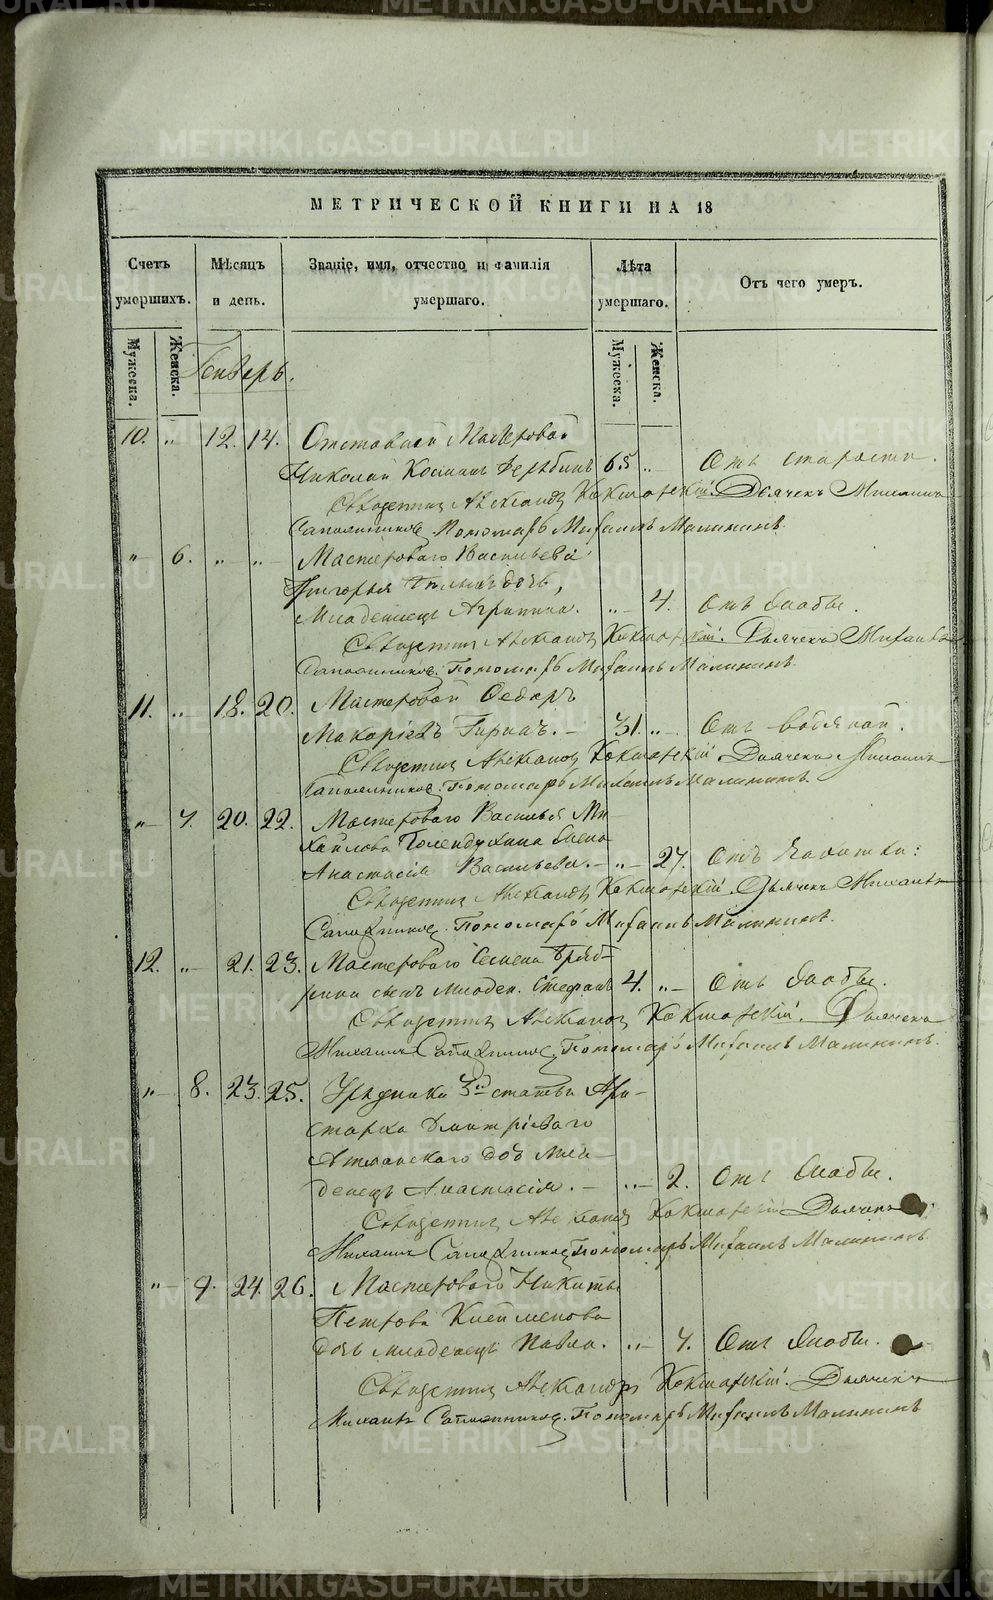 МЕТРИЧЕСКОЙ КНИГИ НА 18
Счетъ умершихъ.
Мѣсяцъ и день.
Званіе, имя, отчество и фамилія умершаго.
Лѣта умершаго.
Отъ чего умеръ.
Мужеска.
Женска.
Мужеска.
Женска.
Генварь.
10. „ 12. 14. Отставной Мастеровой
Николай Косминъ 65 „ Отъ старости.
Священникъ Александръ Кокшарскій. Дьячекъ Михаилъ
Сапожниковъ. Пономарь Михаилъ Малининъ.
„ 6. „ „ Мастероваго Васильева
Григорья дочь,
Младенецъ Агрипина. „ 4. Отъ слабы.
Священникъ Александръ Кокшарскій. Дьячекъ Михаилъ
Сапожниковъ. Пономарь Михаилъ Малининъ.
11. „ 18. 20. Мастеровой Федоръ
Макаріевъ 31. „ Отъ водяной.
Священникъ Александръ Кокшарскій. Дьячекъ Михаилъ
Сапожниковъ. Пономарь Михаилъ Малининъ.
„ 7. 20. 22. Мастероваго Василья Ми-
хайлова Полендухина жена
Анастасія Васильева. „ 27. Отъ чахотки:
Священникъ Александръ Кокшарскій. Дьячекъ Михаилъ
Сапожниковъ. Пономарь Михаилъ Малининъ.
12. „ 21. 23. Мастероваго Семена
сынъ младен. Стефанъ 4. „ Отъ слабы.
Священникъ Александръ Кокшарскій. Дьячекъ
Михаилъ Сапожниковъ. Пономарь Михаилъ Малининъ.
„ 8. 23. 25. Урядника 3й статьи Ари-
старха Дмитріеваго
доч мла-
денецъ Анастасія. „ 2. Отъ слабы.
Священникъ Александръ Кокшарскій Дьячекъ
Михаилъ Сапожниковъ Пономарь Михаилъ Малининъ.
„ 9. 24. 26. Мастероваго Никиты
Петрова
дочь младенецъ Павла. „ 7. Отъ слабы.
Священникъ Александръ Кокшарскій. Дьячекъ
Михаилъ Сапожниковъ. Пономарь Михаилъ Малининъ
METRIKI.GASO-URAL.RU